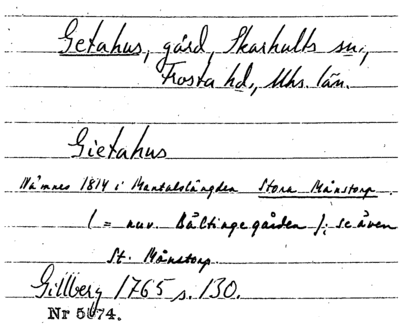 Getahus, gård, Skarhults sn.,
Frosta hd., Mhs. län.
Gietahus
Nämnes 1814 i Mantalslängden Stora Månstorp
(= nuv. Båltingegården); se även
St. Månstorp
Gillberg 1765 s. 130.
Nr 5074.